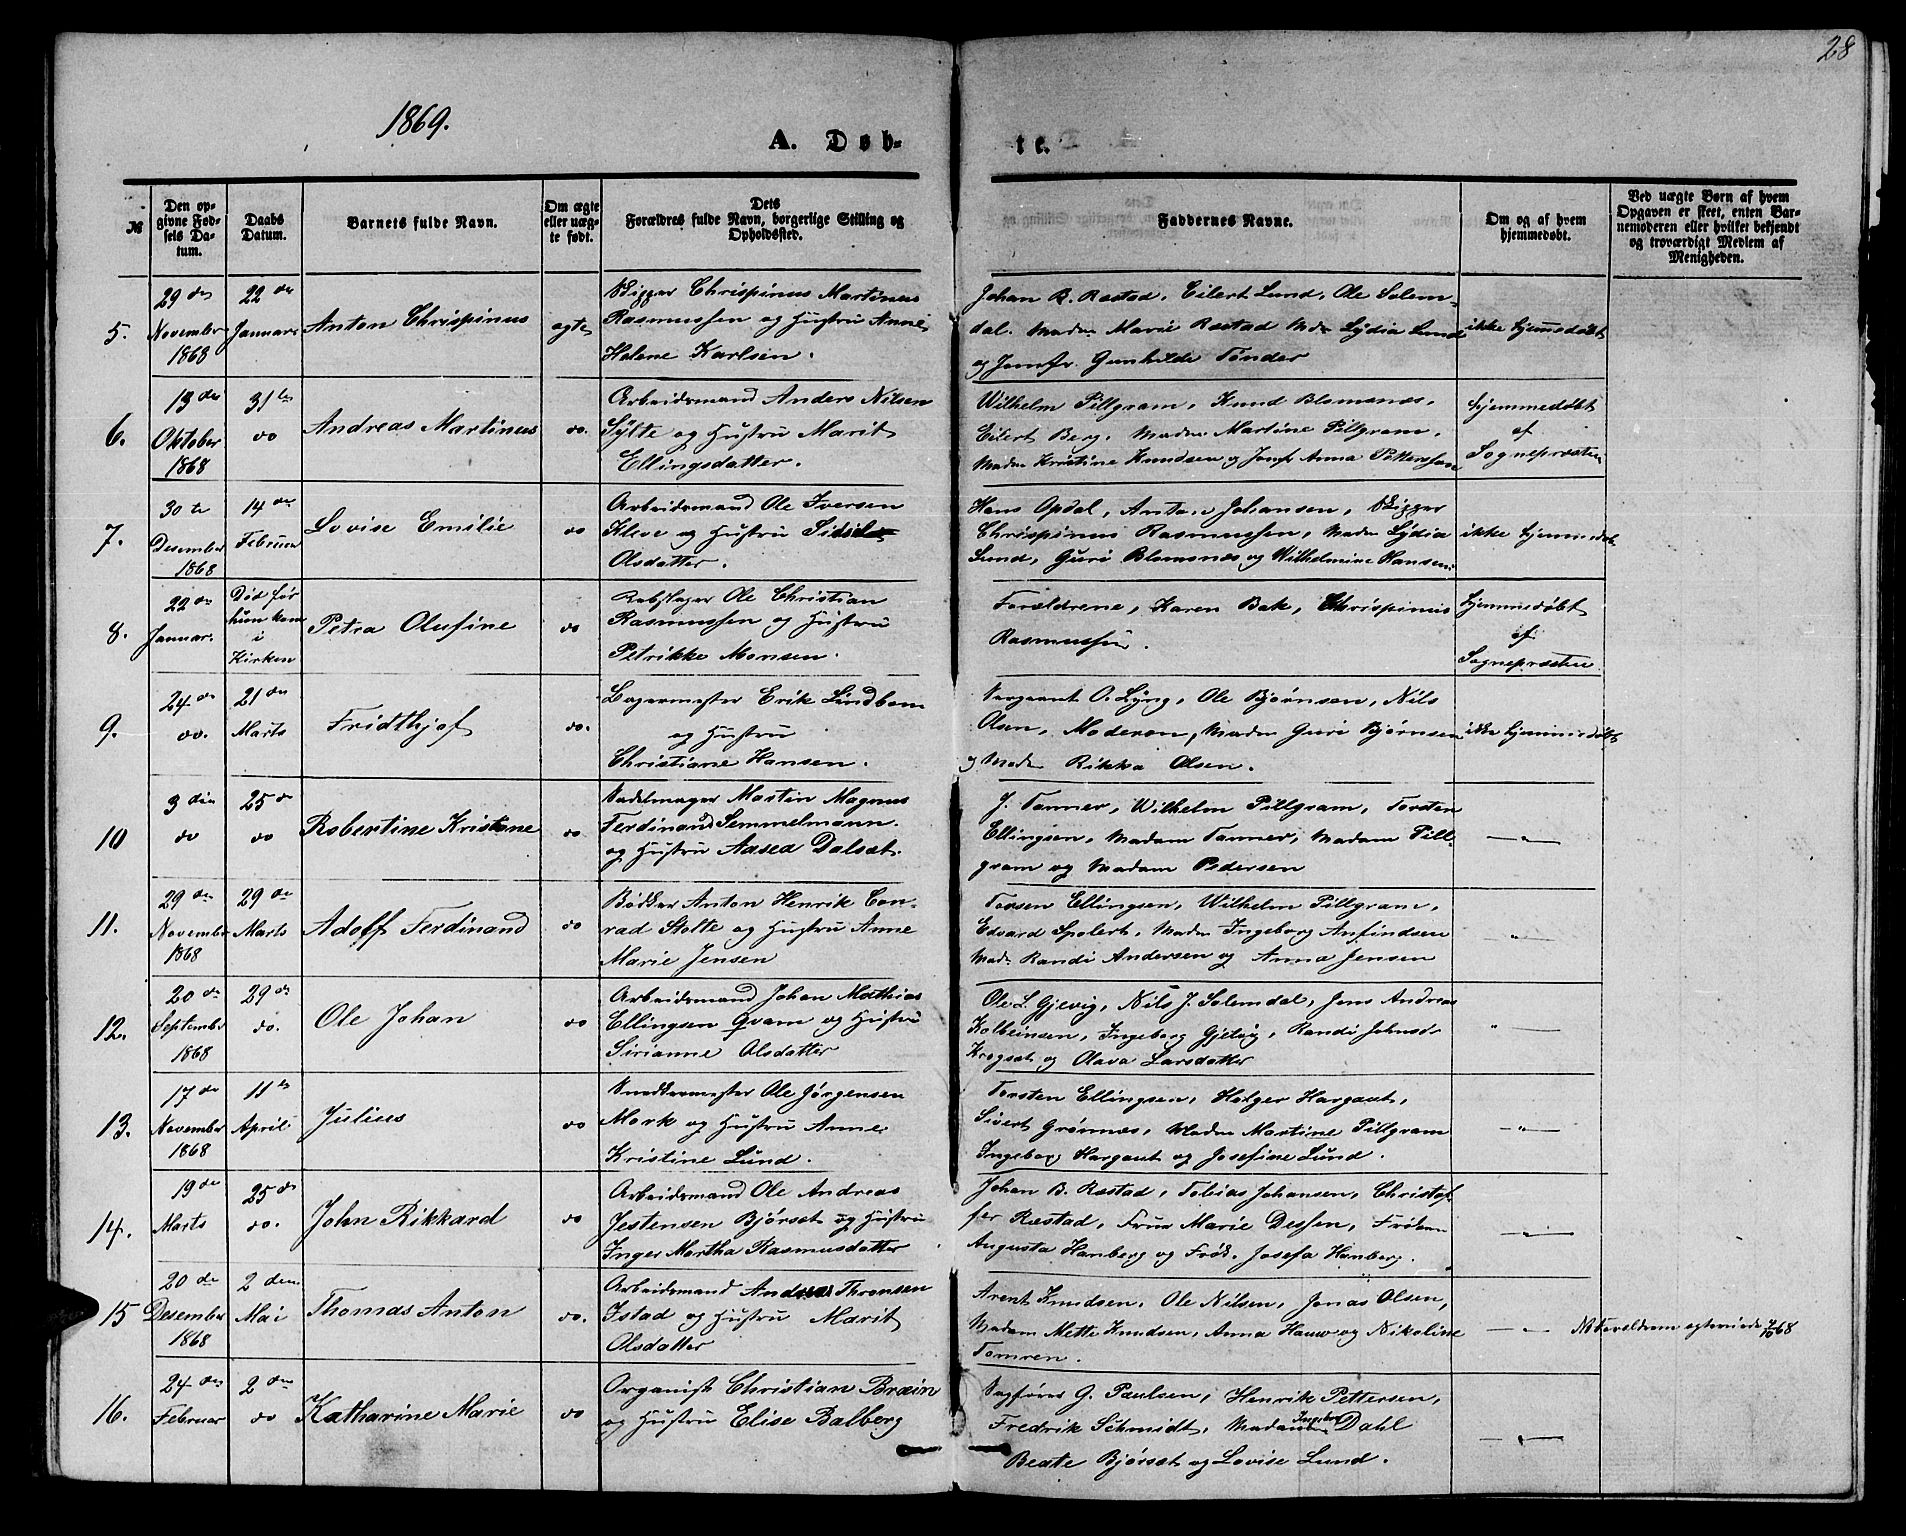 28
1869.
A. Døb-
te.
№
Den op-
givne Fød-
sels Da-
tum.
Daabs
Datum.
Barnets fulde Navn.
Om ægte
eller uæg-
te født.
Dets
Forældres fulde Navn, borgerlige Stilling og
Opholdssted.
Faddernes Navne.
Om og af hvem
hjemmedøbt.
Ved uægte Børn af hvem
Opgaven er skeet, enten Bar-
nemoderen eller hvilket bekjendt
og troværdigt Medlem af
Menigheden.
5.
29 de
November
1868
22 de
Januar
Anton Chrispinus
ægte
Skipper Chrispinus Martinus
Rasmussen og Hustru Anne
Helene Karlsen.
Johan B. Ræstad, Eilert Lund, Ole Solem-
dal. Madm Marie Ræstad Mdm Lydia Lund
og Jomfr. Gunhilde Tønder
ikke hjemmedøbt
6.
13 de
Oktober
1868
31 te
do
Andreas Martinus
do.
Arbeidsmand Anders Nilsen
Sylte og Hustru Marit
Ellingsdatter.
Wilhelm Pillgram, Knud Blomsnæs,
Eilert Berg. Madm Martine Pillgram.
Madm Kristine Knudsen og Jomf Anna Pettersen
hjemmedøbt
af
Sognepræsten
7.
30 te
Desember
1868
14 de
Februar
Lovise Emilie
do
Arbeidsmand Ole Iversen
Kleve og Hustru
Olsdatter.
Hans Opdal, Anton Johansen, Skipper
Chrispinus Rasmussen, Madm Lydia
Lund, Guri Blomsnæs og Wilhelmine Hansen.
ikke hjemmedøbt
8.
22 de
Januar.
Død før
hun kom
i
Kirken
Petra Olufine
do
Rebslager Ole Christian
Rasmussen og Hustru
Petrikke Monsen.
Forældrene, Karen Bak, Chrispinus
Rasmussen.
hjemmedøbt
af
Sognepræsten.
9.
24 de
do.
21 de
Marts
Fridthjof
do.
Bagermester Erik Lindbom
og Hustru
Christiane Hansen.
Sergeant O. Lyng, Ole Bjørnsen, Nils
Olsen, Moderen, Madm Guri Bjørnsen
og Madm Rikka Olsen.
ikke hjemmedøbt
10
3 die
do
25 de
do
Robertine Kristine
do
Sadelmager Martin Magnus
Ferdinand Semmelmann.
og Hustru Aasea Dalsæt.
J. Tanner, Wilhelm Pillgram, Torsten
Ellingsen, Madam Tanner, Madam Pill-
gram og Madam Pedersen
— „ —
11.
29 de
November
1868
29 de
Marts
Adolf Ferdinand
do
Bødker Anton Henrik Con-
rad Stolte og Hustru Anne
Marie Jensen
Torsen Ellingsen, Wilhelm Pillgram,
Edvard Spolert, Madm Ingeborg Anfindsen
Madm Randi Andersen og Anna Jensen
— „ —
12.
20 de
September
1868
29 de
do.
Ole Johan
do
Arbeidsmand Johan Mathias
Ellingsen Qvam og Hustru
Sirianne Olsdatter
Ole L. Gjevig, Nils J. Solemdal, Jens Andreas
Kolbeinsen, Ingeborg Gjevig, Randi Johnsdr
Krogsæt og Olava Larsdatter
— „ —
13.
17 de
November
1868
11 te
April
Julius
do
Snedkermester Ole Jørgensen
Mork og Hustru Anne
Kristine Lund.
Torsten Ellingsen, Holger Hargaut,
Sivert Grønnæs, Madm Martine Pillgram
Ingeborg Hargaut og Josefine Lund.
— „ —
14.
19 de
Marts
25 de
do.
John Rikkard
do
Arbeidsmand Ole Andreas
Jestensen Bjørset og Hustru
Inger Martha Rasmusdatter
Johan B. Ræstad, Tobias Johansen, Christof-
fer Ræstad, Frue Marie Dessen, Frøken
Augusta Hanberg og Frøk. Josefa Hanberg.
— „ —
15
20 de
Desember
1868
2 den
Mai
Thomas Anton
do.
Arbeidsmand Andreas Thronsen
Istad og Hustru Marit
Olsdatter
Arent Knudsen, Ole Nilsen, Jonas Olsen,
Madam Mette Knudsen, Anna Hauw og Nikoline
Tomren.
— „ —
NB Forældrene ægteviede 68
16.
24 de
Februar
2 den
do
Katharine Marie
do
Organist Christian Bræin
og Hustru Elise Balberg
Sagfører G. Paulsen, Henrik Pettersen,
Fredrik Schmidt, Madam Ingeborg Dahl
Beate Bjørset og Lovise Lund.
— „ —